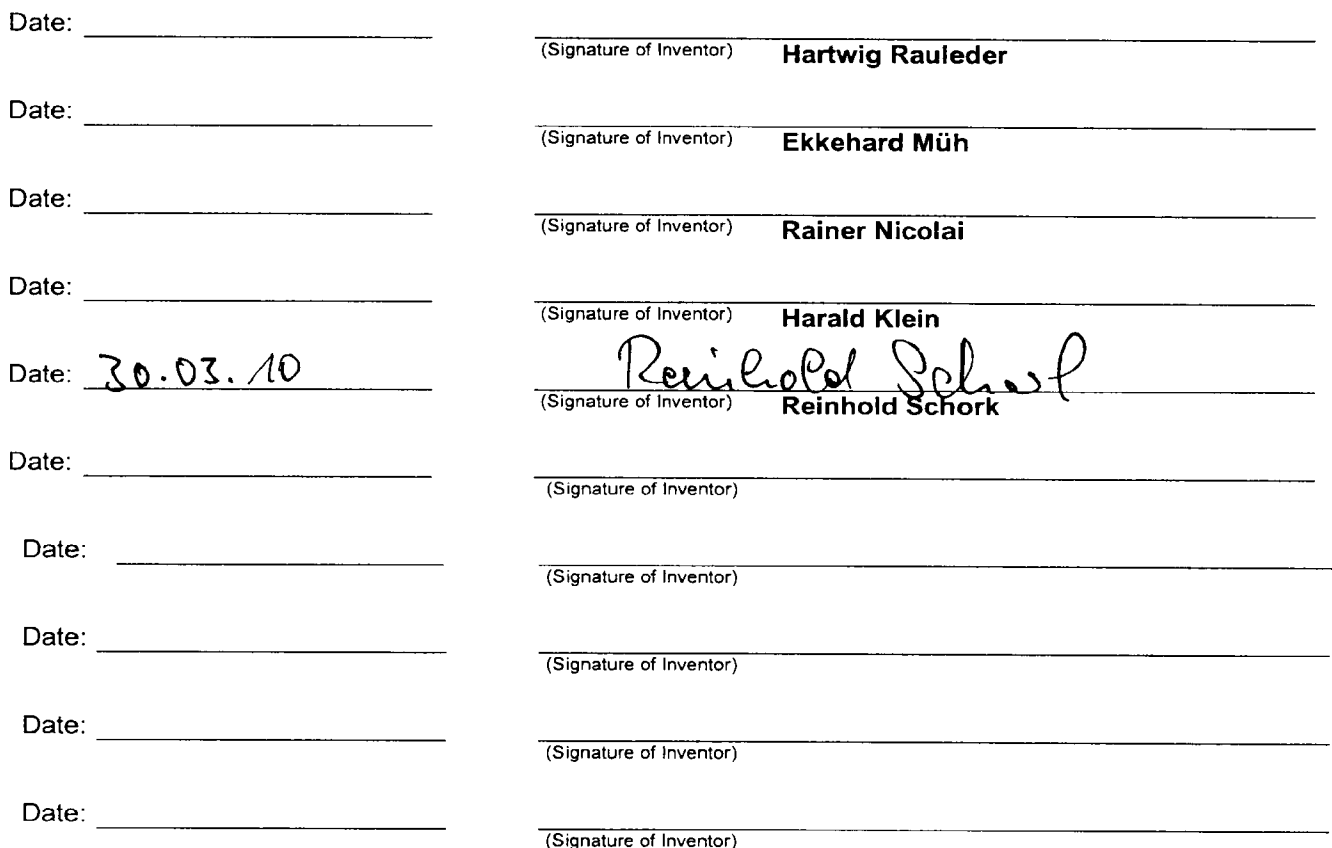 Date:
(Signature of Inventor) Hartwig Rauleder
Date:
(Signature of Inventor) Ekkehard Müh
Date:
(Signature of Inventor) Rainer Nicolai
Date:
(Signature of Inventor) Harald Klein
Date: 30.03.10 Reinhold Schork
(Signature of Inventor) Reinhold Schork
Date:
(Signature of Inventor)
Date:
(Signature of Inventor)
Date:
(Signature of Inventor)
Date:
(Signature of Inventor)
Date:
(Signature of Inventor)